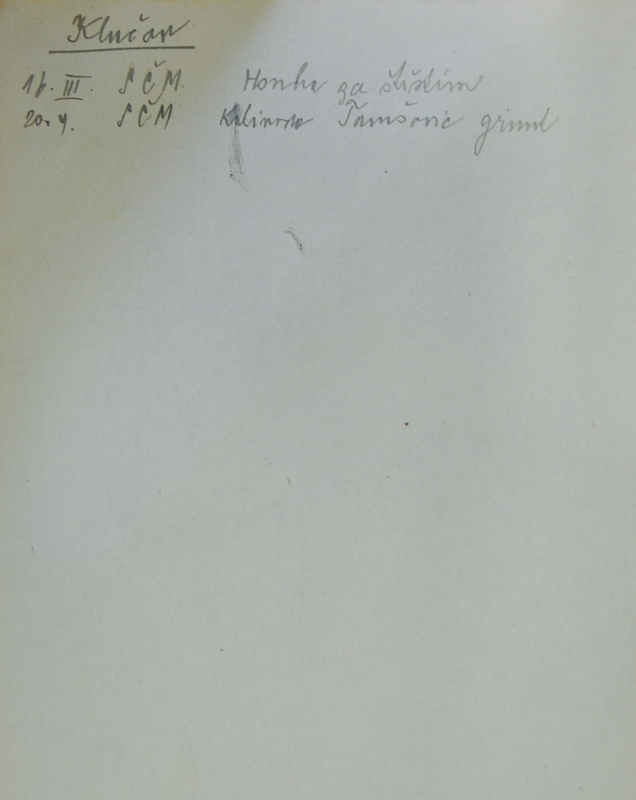 Klučov
16. III. SČM. Honba za štěstím
20. V. SČM Kalinova Tamšovic grunt